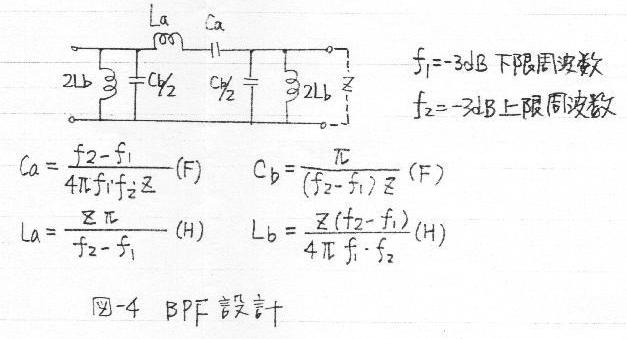 La
Ca
2Lb
Cb/2
Cb/2
2Lb
Z
f₁=-3dB 下限周波数
f₂=-3dB 上限周波数
Ca = f₂-f₁ / 4πf₁·f₂Z (F)
Cb = π / (f₂-f₁)Z (F)
La = Zπ / f₂-f₁ (H)
Lb = Z(f₂-f₁) / 4π f₁·f₂ (H)
図-4 BPF 設計